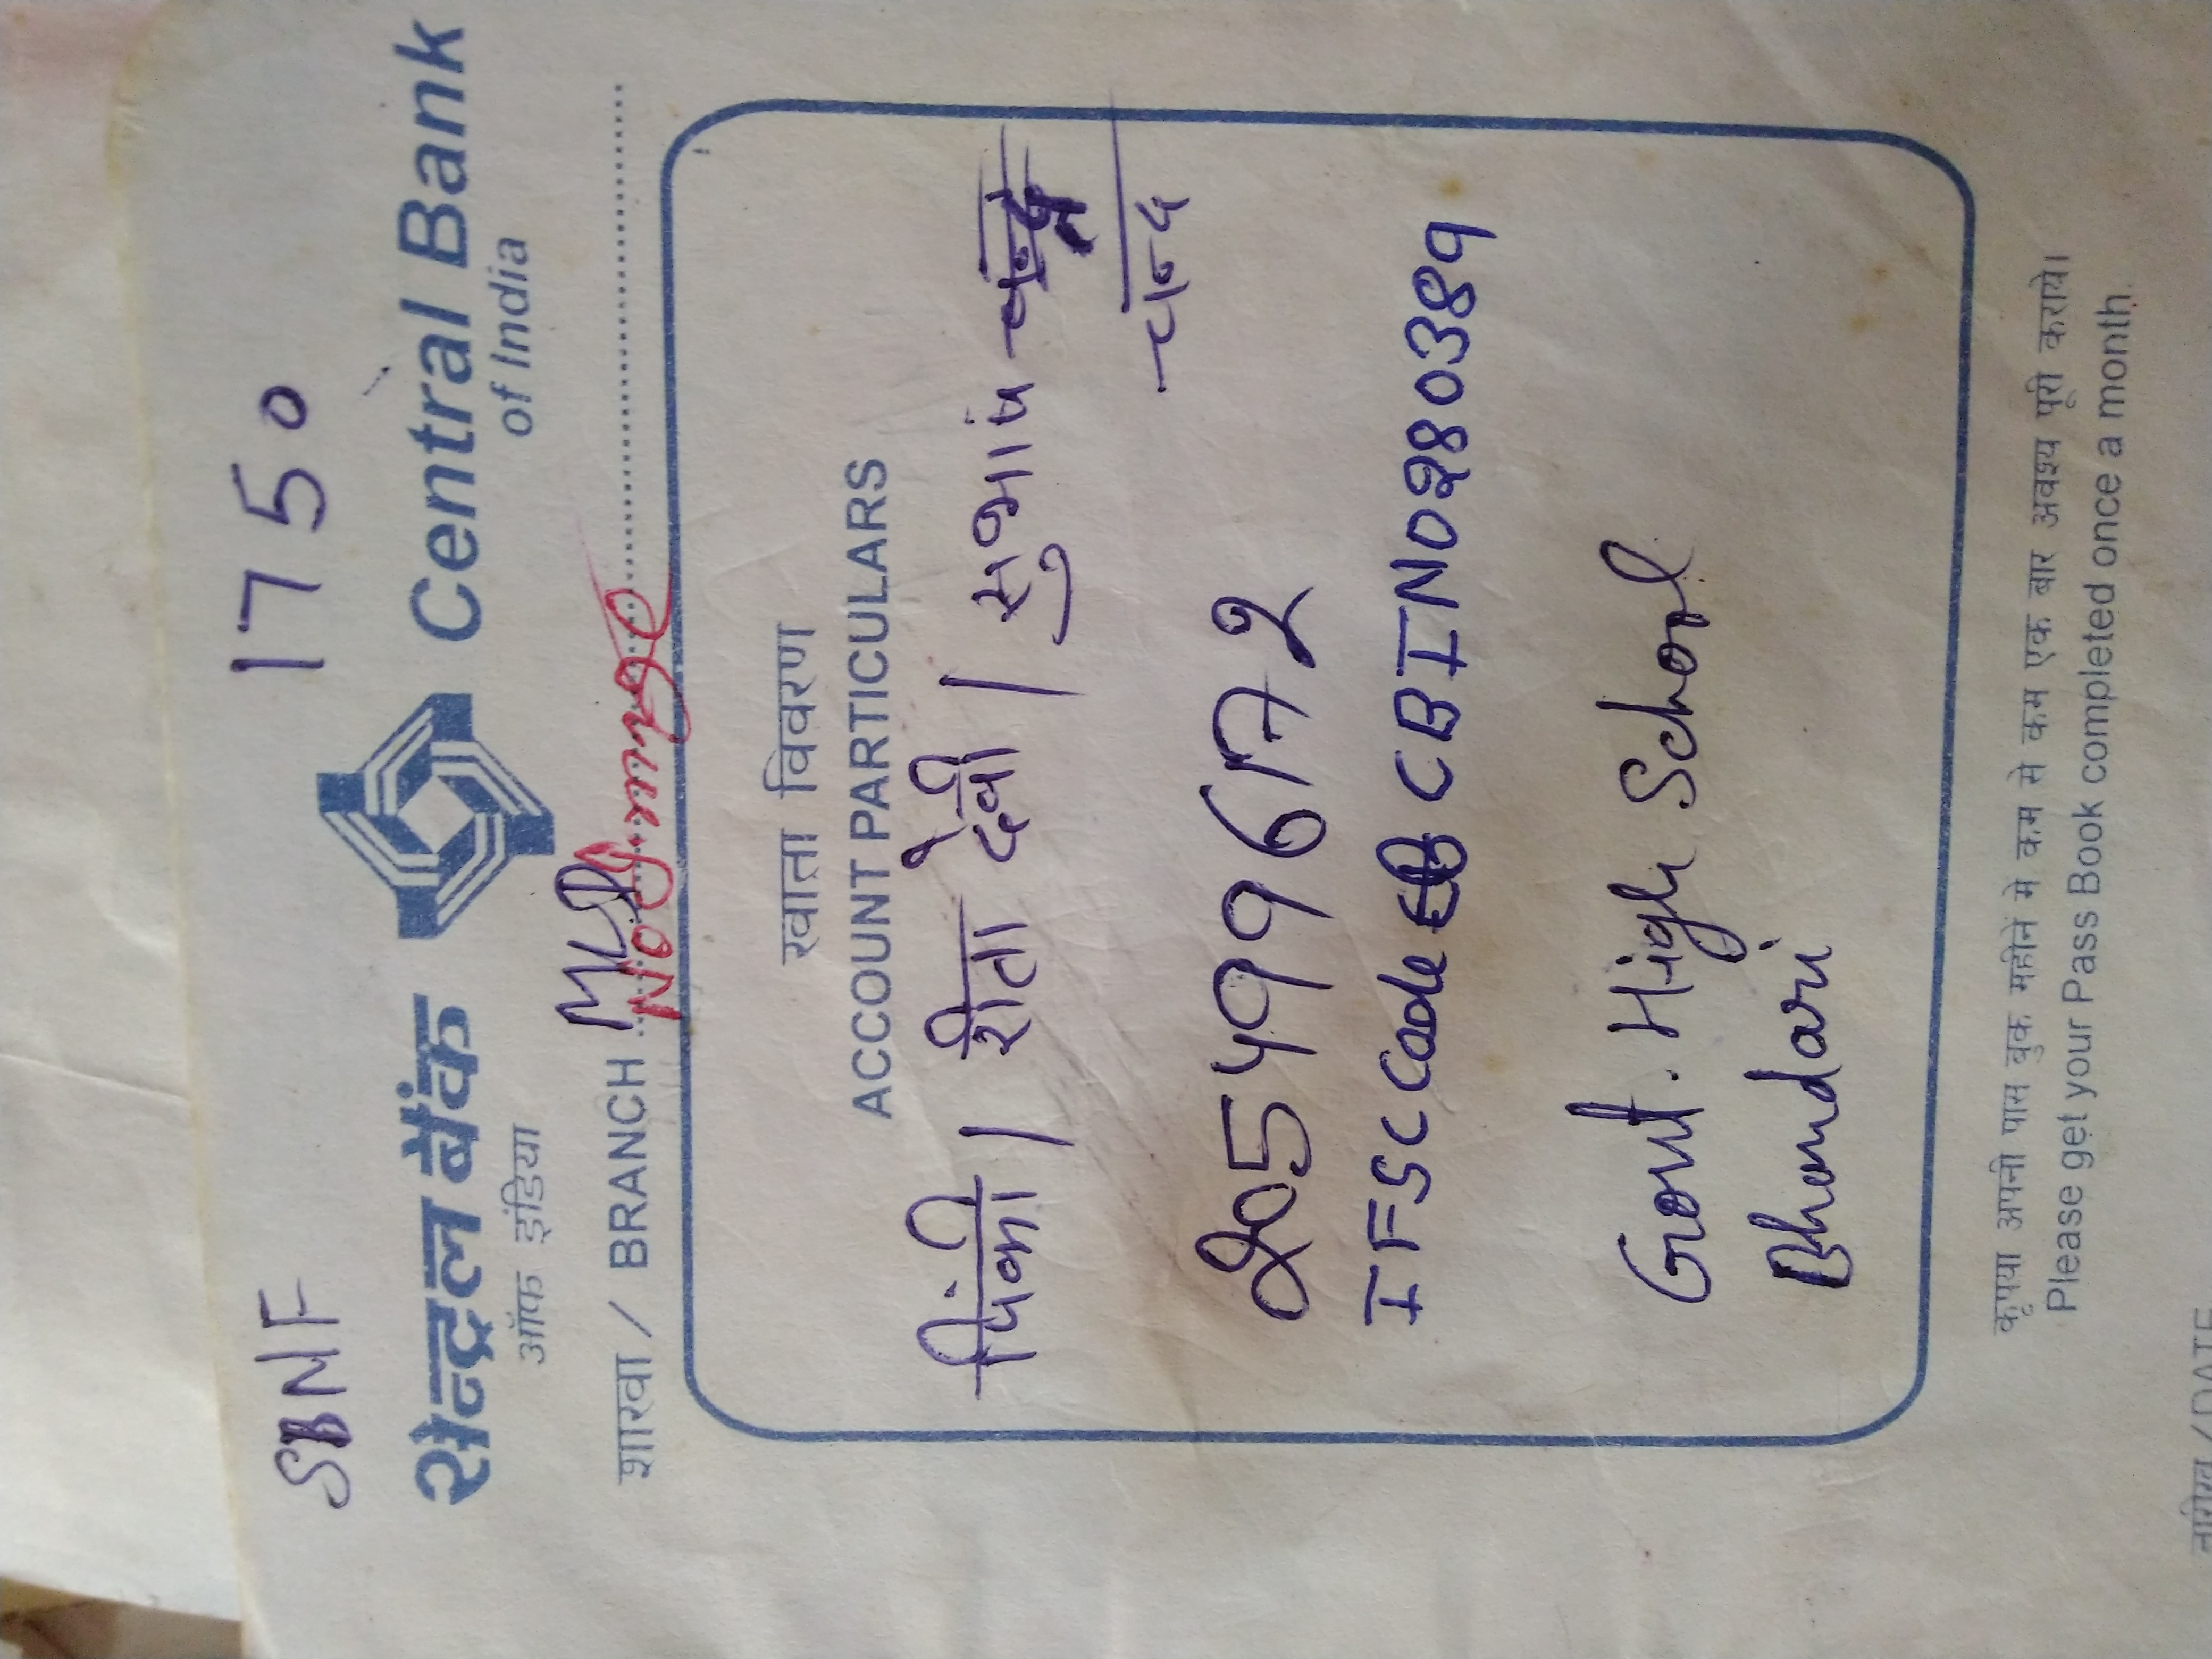 SBNF 1750
सेन्ट्रल बैंक Central Bank
ऑफ इंडिया of India
शाखा / BRANCH
खाता विवरण
ACCOUNT PARTICULARS
पिंकी / रीता देवी / सुभाष चन्द
चन्द
IFSC Code CBIN0280389
Govt. High School
Bhandari
कृपया अपनी पास बुक महीने मे कम से कम एक बार अवश्य पूरी करायें।
Please get your Pass Book completed once a month.
तारीख / DATE